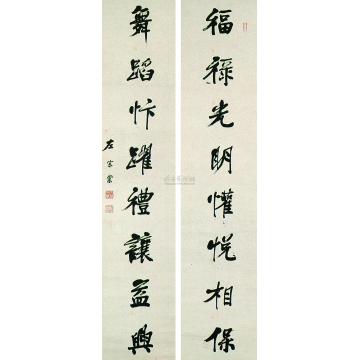 福祿光明懽悅相保
舞蹈忭躍禮讓益興
左宗棠